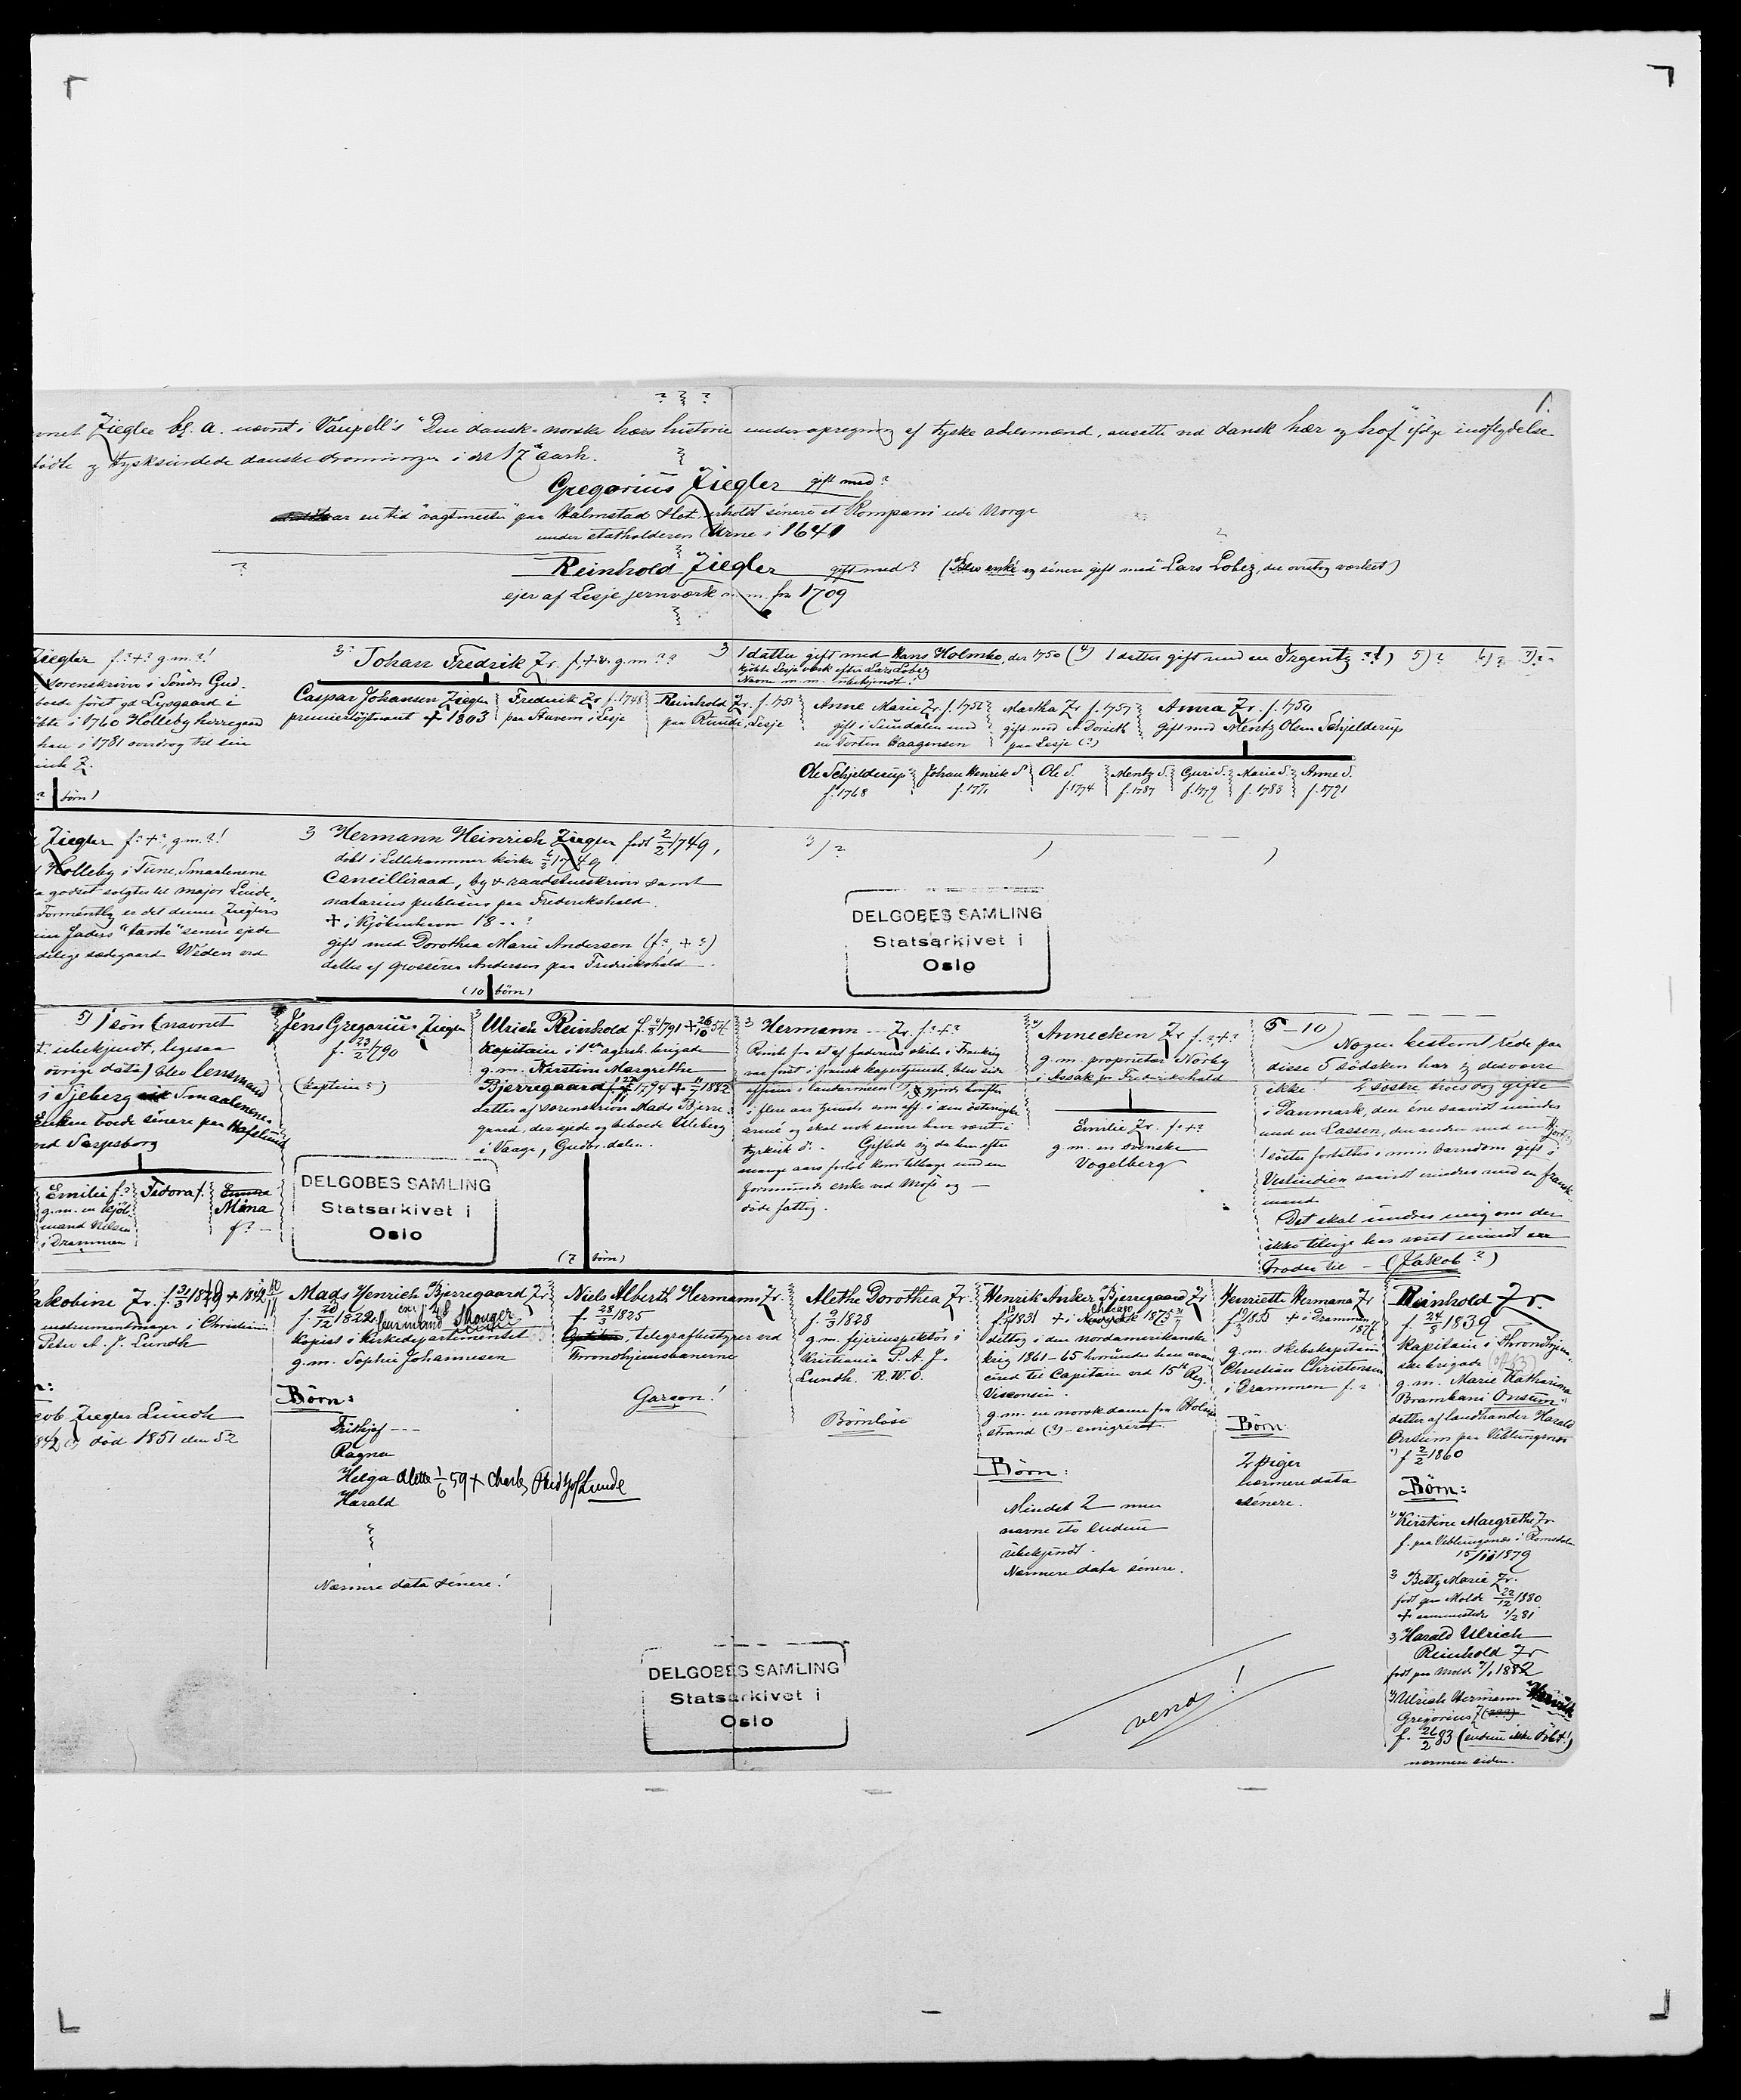 ? ? ?
1.
Ziegler bl. a. nævnt i Vaupell's "Den dansk-norske hærs historie under opregning af tyske adelsmænd, ansatte ved dansk hær og hof ifølge indflydelse
fødte og tysksindede danske dronninger i det 17de aarh.
Gregorius Ziegler gift med?
var en tid "vagtmester" paa Halmstad slot, erholdt sénere et Kompani ude Norge
under statholderen Urne i 1641
?
Reinhold Ziegler gift med? (Blev enke og sénere gift med Lars Lobez, der overtog værket)
ejer af Lesje jernværk m. m. fra 1709
Ziegler f.? +? g.m.?!
Sorenskriver i Søndre Gud-
boede først gd Lysgaard i
i 1760 Holleby herregaard
han i 1781 overdrog til sin
? børn)
Johan Fredrik Zr. f.? +? g.m. ??
Caspar Johansen Ziegler
premierløjtnant + 1803
Frederik Zr f. 1748
paa Stavem i Lesje
Reinhold Zr. f. 1751
paa Rinde, Lesje
1 datter gift med Hans Holmbo, der 1750
kjøbte Lesje værk efter Lars Lobez
Navne m. m. ubekjendt!
4) 1 datter gift med en Irgentz ?!) 5) ? 6) ? 7) ?
Anne Marie Zr. f. 1752
gift i Sundalen med
en Torsten Haagensen
Martha Zr f. 1757
gift med A. Dorseth
paa Lesje (?)
Anna Zr. f. 1750
gift med Mentz Olsen Schjelderup
Ole Schjelderup f. 1768
Johan Henrik S f. 177.
Ole S. f. 1774
Mentz S. f. 1787
Guri S. f. 1779
Maria S. f. 1783
Anne S. f. 1791
Ziegler f.? +?, g.m.?!
Holleby i Tune, Smaalenene
godset solgtes til major Linde.
Formentlig er det denne Zieglers
faders "tante" senere ejede
sædegaard Weden ved
3 Hermann Heinrich Ziegler født 2/2 1749,
døbt i Lillehammer kirke 6/2 1749
Cancelliraad, by & raadstueskriver samt
notarius publicus paa Frederikshald.
+ i Kjøbenhavn 18..?
gift med Dorothea Marie Andersen (f.?, +?)
datter af grosserer Andersen paa Fredrikshald
(10 børn)
3) ? ) )
DELGOBES SAMLING
Statsarkivet i
Oslo
5) 1 søn (navnet
ubekjendt, ligesaa
øvrige data) blev lensmand
i Tjeberg Smaalenene.
Enken boede sénere paa Hafslund
ved Sarpsborg
Emilie f.?
g.m. en kjøb-
mand Nilsen
i Drammen
Fedora f.
Emma
Mina
f.? -
Jens Gregorius Ziegler
f. 23/2 1790
(kaptein?)
DELGOBES SAMLING
Statsarkivet i
Oslo
Ulrich Reinhold f. 1791 + 26/10 54
Kapitain i 1ste agersh. brigade
g.m. Kirstine Margrethe
Bjerregaard 1794 + 1882
datter af sorenskriver Mads Bjerre-
gaard, der ejede og beboede Ulleberg
i Vaage, Gudbr.dalen.
(7 børn)
3 Hermann --- Zr. f.? +?
Reiste fra et af faderens skibe i Frankrig
var først i fransk kapertjeneste, blev siden
officer i landarméen (?), gjorde henefter
i flere aar tjeneste som off. i den østerrigske
armé og skal nok senere have været i
tyrkisk d°. Giftede sig da han efter
mange aars forløb kom tilbage med en
formuende enke ved Moss og —
døde fattig.
Annecken Zr f.? +?
g.m. proprietær Norby
i Assak pr Frederikshald
Emilie Zr. f.? +?
g.m. en svenske
Vogelberg
5–10)
Nogen bestemt rede paa
disse 5 sødsken har jeg desværre
ikke! 2 søstre troes dog gifte
i Danmark, den éne saavidt mindes
med en Lassen, den anden med en
1 søster fortaltes i min barndom gift i
Vestindien saavidt mindes med en fransk-
mand
Det skal undres mig om der
ikke tillige har været mindst een
broder til – (Jakob?)
Jakobine Zr. f. 31/3 1819 + 1842 10/11
instrumentmager i Christiania
Peter A. J. Lundh
Jacob Ziegler Lundh
1842 og død 1851 den 5/2
Mads Henrich Bjerregaard Zr
f. 20/12 1822
Kopist i Kirkedepartementet
g.m. Sophie Johannesen
Børn:
Fridtjof ---
Ragna
Helga Alette 1/6 59 + Charles Fridtjof Lunde
Harald
Nærmere data sénere!
Niels Alberth Hermann Zr.
f. 28/3 1825
telegrafbestyrer ved
Throndhjemsbanerne
Garçon!
Alethe Dorothea Zr.
f. 9/3 1828
g.m. fejerinspektør i
Kristiania P. A. J.
Lundh. R.W.O.
Børnløse
Henrik Anker Bjerregaard Zr
f. 1831 + i Newyork Chicago 1875
deltog i den nordamerikanske
krig 1861–65 hvorunder han avan-
cerede til Capitain ved 15de Reg.
Visconsin.
g.m. en norsk dame fra Holme-
strand (?) – emigreret.
Børn:
Mindst 2 men
navne etc endnu
ubekjendt.
Nærmere data sénere.
Henriette Hermana Zr
f. 1835 + i Drammen
187
g.m. skibskapitain
Christian Christensen
i Drammen f.?
Børn
2 piger
nærmere data
sénere.
Reinhold Zr.
f. 24/5 1839
Kapitain i Throndhjem-
ske brigade
g.m. Marie Katharina
Brambani Onsum
datter af landhandler Harald
Onsum paa Veblungsnes
f. 2/2 1860
Børn:
1) Kirstine Margrethe Zr
f. paa Veblungsnes i Romsdalen
15/11 1879
2) Betty Marie Zr.
født paa Molde 22/12 1880
+ sammesteds 1/2 81
3) Harald Ulrich
Reinhold Zr
født paa Molde 1/1 1882
4) Ulrich Hermann Henrik
Gregorius Z
f. 26/2 83 (endnu ikke døbt!)
nærmere siden.
DELGOBES SAMLING
Statsarkivet i
Oslo
vend!